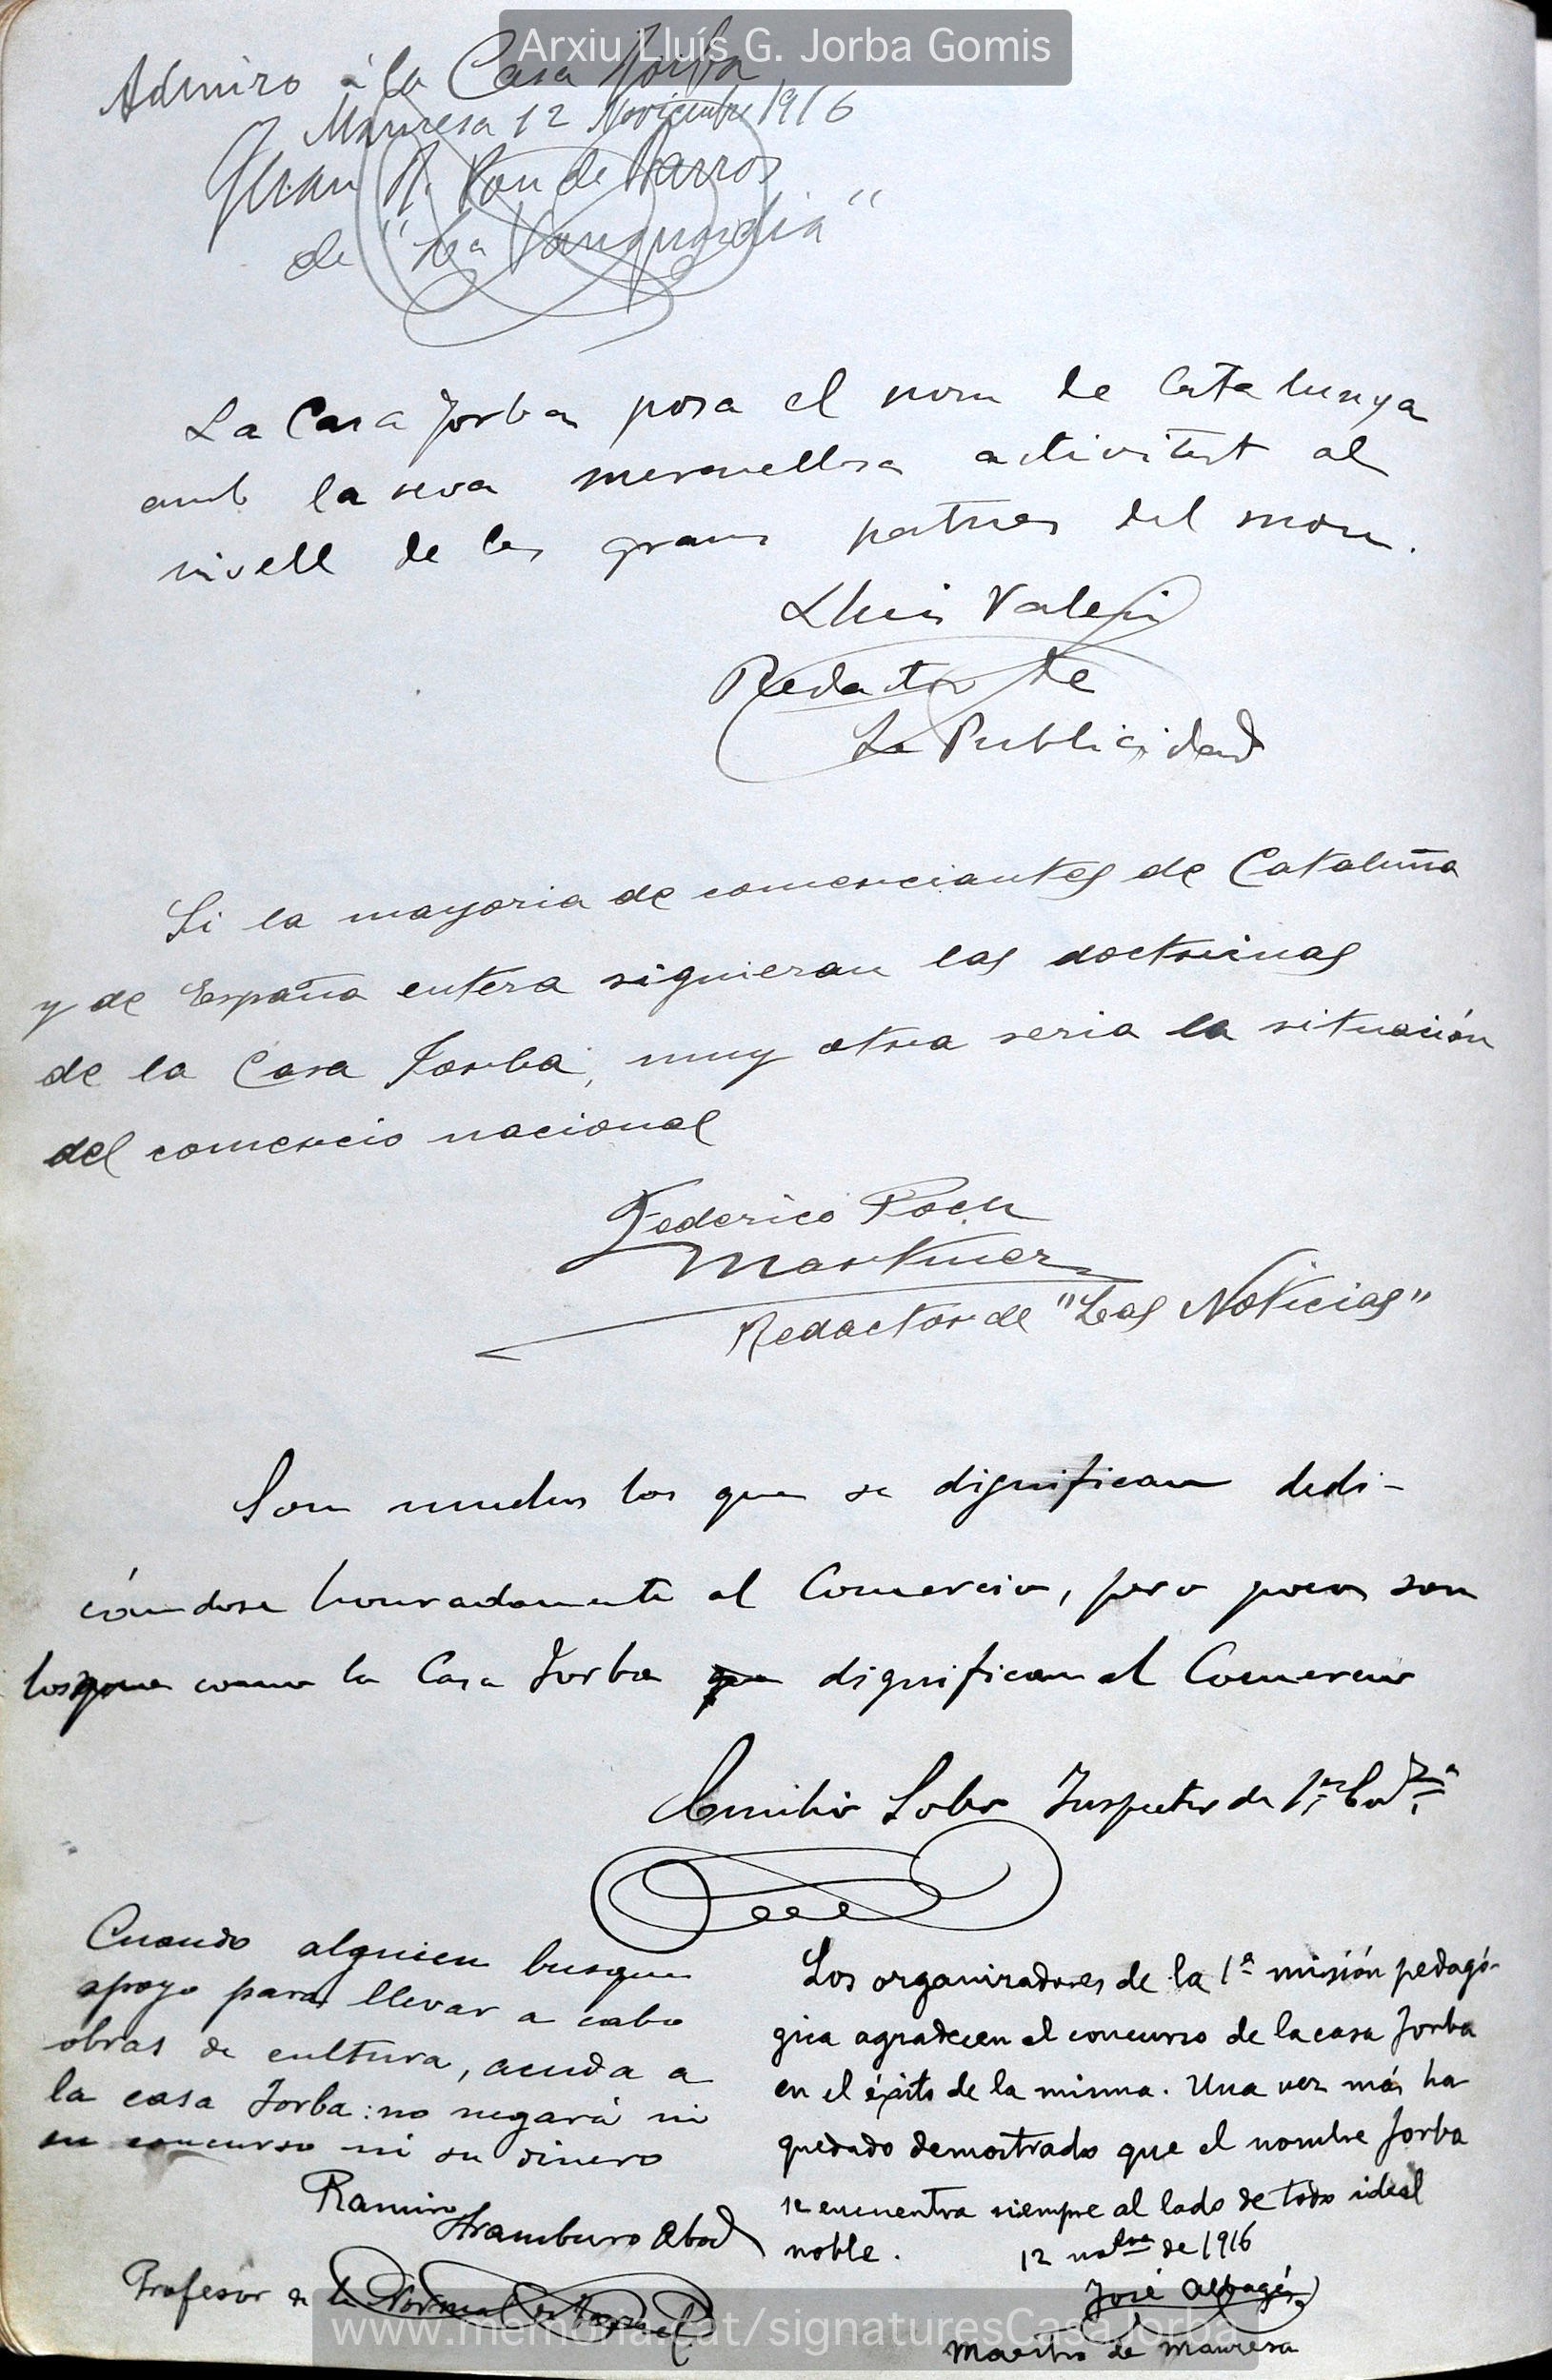 Arxiu Lluís G. Jorba Gomis
Admiro á la Casa Jorba
Manresa 12 Noviembre 1916
Juan
de "La Vanguardia"
La Casa Jorba posa el nom de Catalunya
amb la seva meravellosa activitat al
nivell de les grans patries del mon.
Lluis Valeri
Redactor de
La Publicidad
Si la mayoria de comerciantes de Cataluña
y de España entera siguieran las doctrinas
de la Casa Jorba, muy otra seria la situación
del comercio nacional
Federico Poch
Martinez
Redactor de "Las Noticias"
Son muchos los que se dignifican dedi-
cándose honradamente al Comercio, pero pocos son
los que como la Casa Jorba dignifican el Comercio
Emilio Soler Inspector de 1ª
Cuando alguien busque
apoyo para llevar a cabo
obras de cultura, acuda a
la casa Jorba: no negará ni
su concurso ni su dinero
Ramiro
Aramburo Abad
Profesor de la Normal
Los organizadores de la 1ª misión pedagó-
gica agradecen el concurso de la casa Jorba
en el éxito de la misma. Una vez más ha
quedado demostrado que el nombre Jorba
se encuentra siempre al lado de todo ideal
noble.
12 nobre de 1916
José Albagés
Maestro de Manresa
www.memoria.cat/signaturesCasaJorba